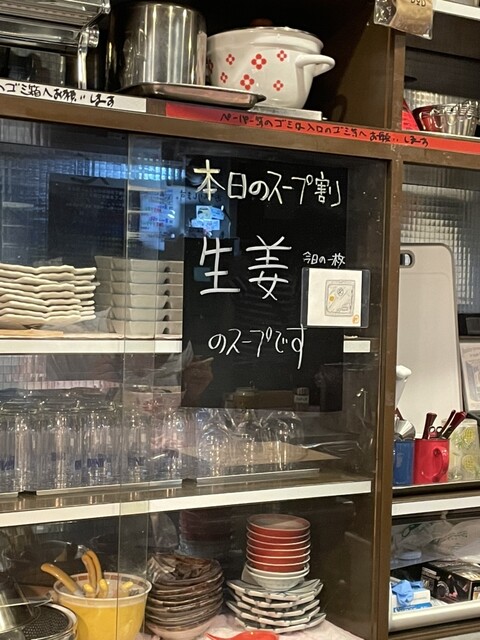 のゴミ箱へお願いしまーす
ペーパー等のゴミは入口のゴミ箱へお願いしまーす
本日のスープ割り
生姜
今日の一枚
のスープです